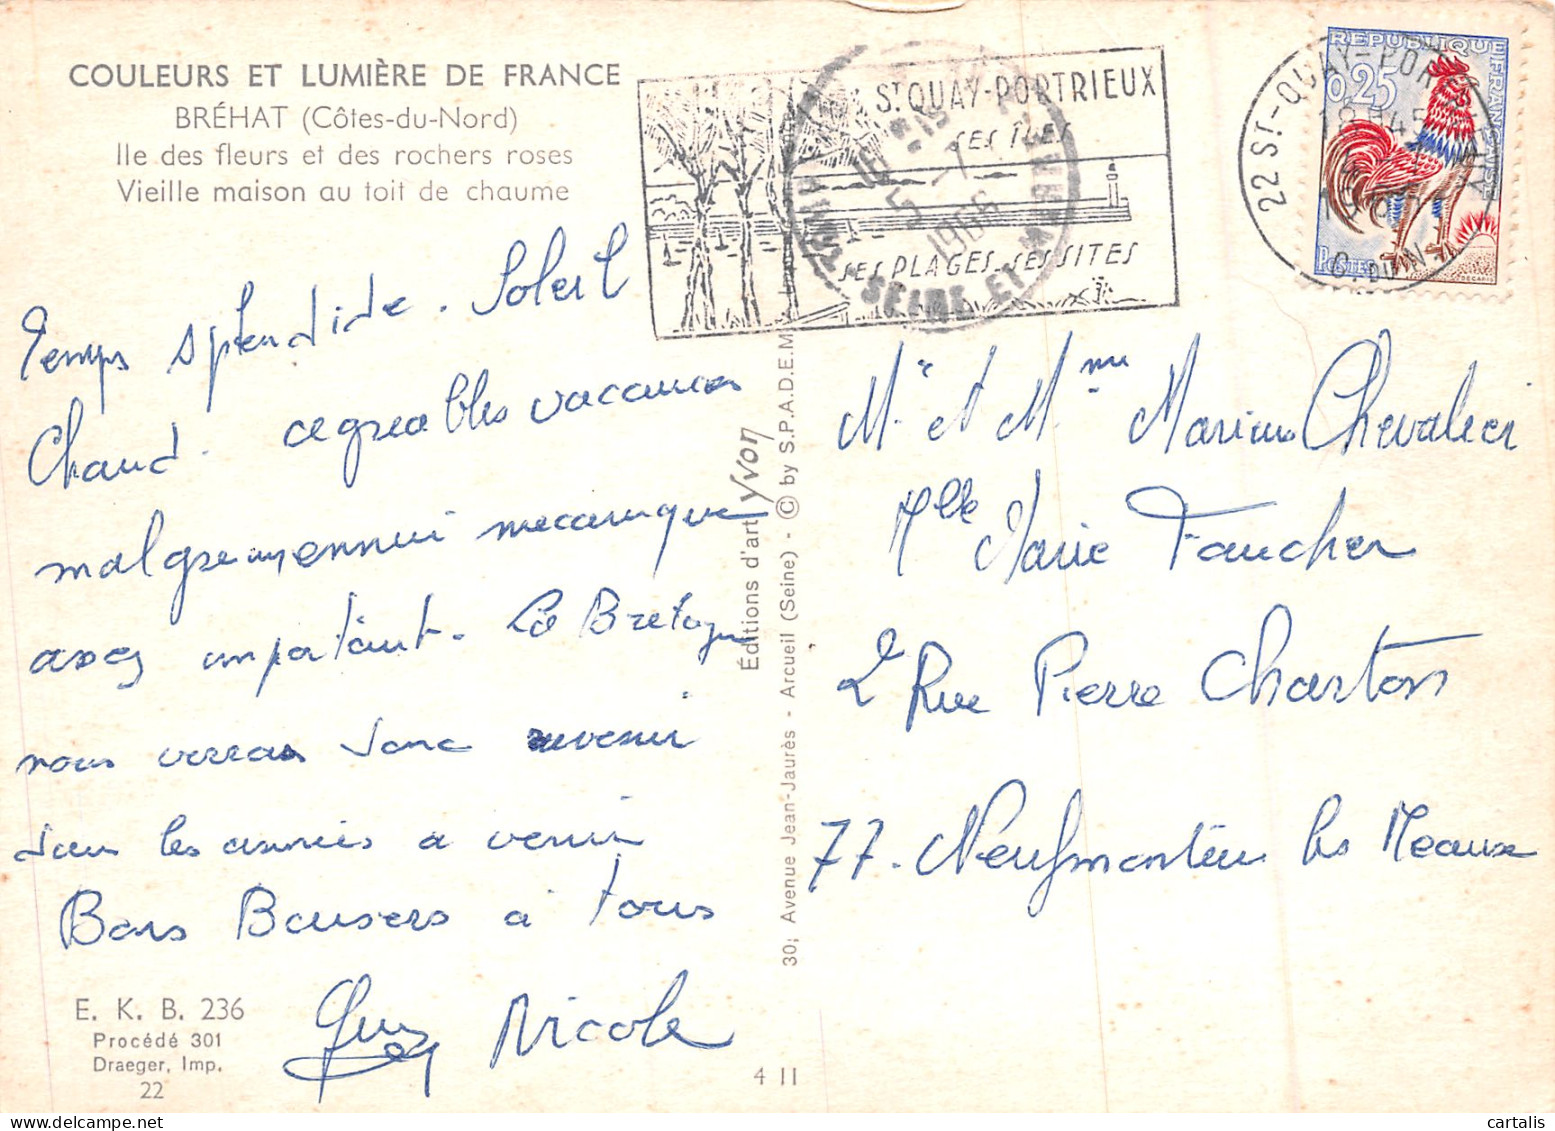 COULEURS ET LUMIÈRE DE FRANCE
BRÉHAT (Côtes-du-Nord)
Ile des fleurs et des rochers roses
Vieille maison au toit de chaume
Temps splendide. Soleil
Chaud. agreables vacances
malgre un ennui mecanique
assez important. La Bretagne
nous verra donc revenir
dans les années a venir
Bons Baisers à tous
Guy Nicole
E. K. B. 236
Procédé 301
Draeger, Imp.
22
Éditions d'art Yvon
30, Avenue Jean-Jaurès - Arcueil (Seine) - © by S.P.A.D.E.M
4 11
ST QUAY-PORTRIEUX
SES ÎLES
SES PLAGES SES SITES
5 - 7
1966
SEINE ET MARNE
REPUBLIQUE FRANÇAISE
0,25
POSTES
DECARIS
22 ST-QUAY-PORTRIEUX
C. DU N.
Mr et Mme Marius Chevalier
Mlle Marie Faucher
2 Rue Pierre Charton
77. Neufmontiers les Meaux
cartalis